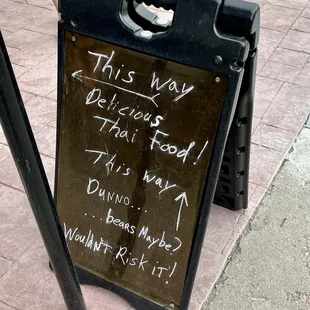 This way
Delicious
Thai Food!
This way
DUNNO...
...bears Maybe?
Wouldn't Risk it!